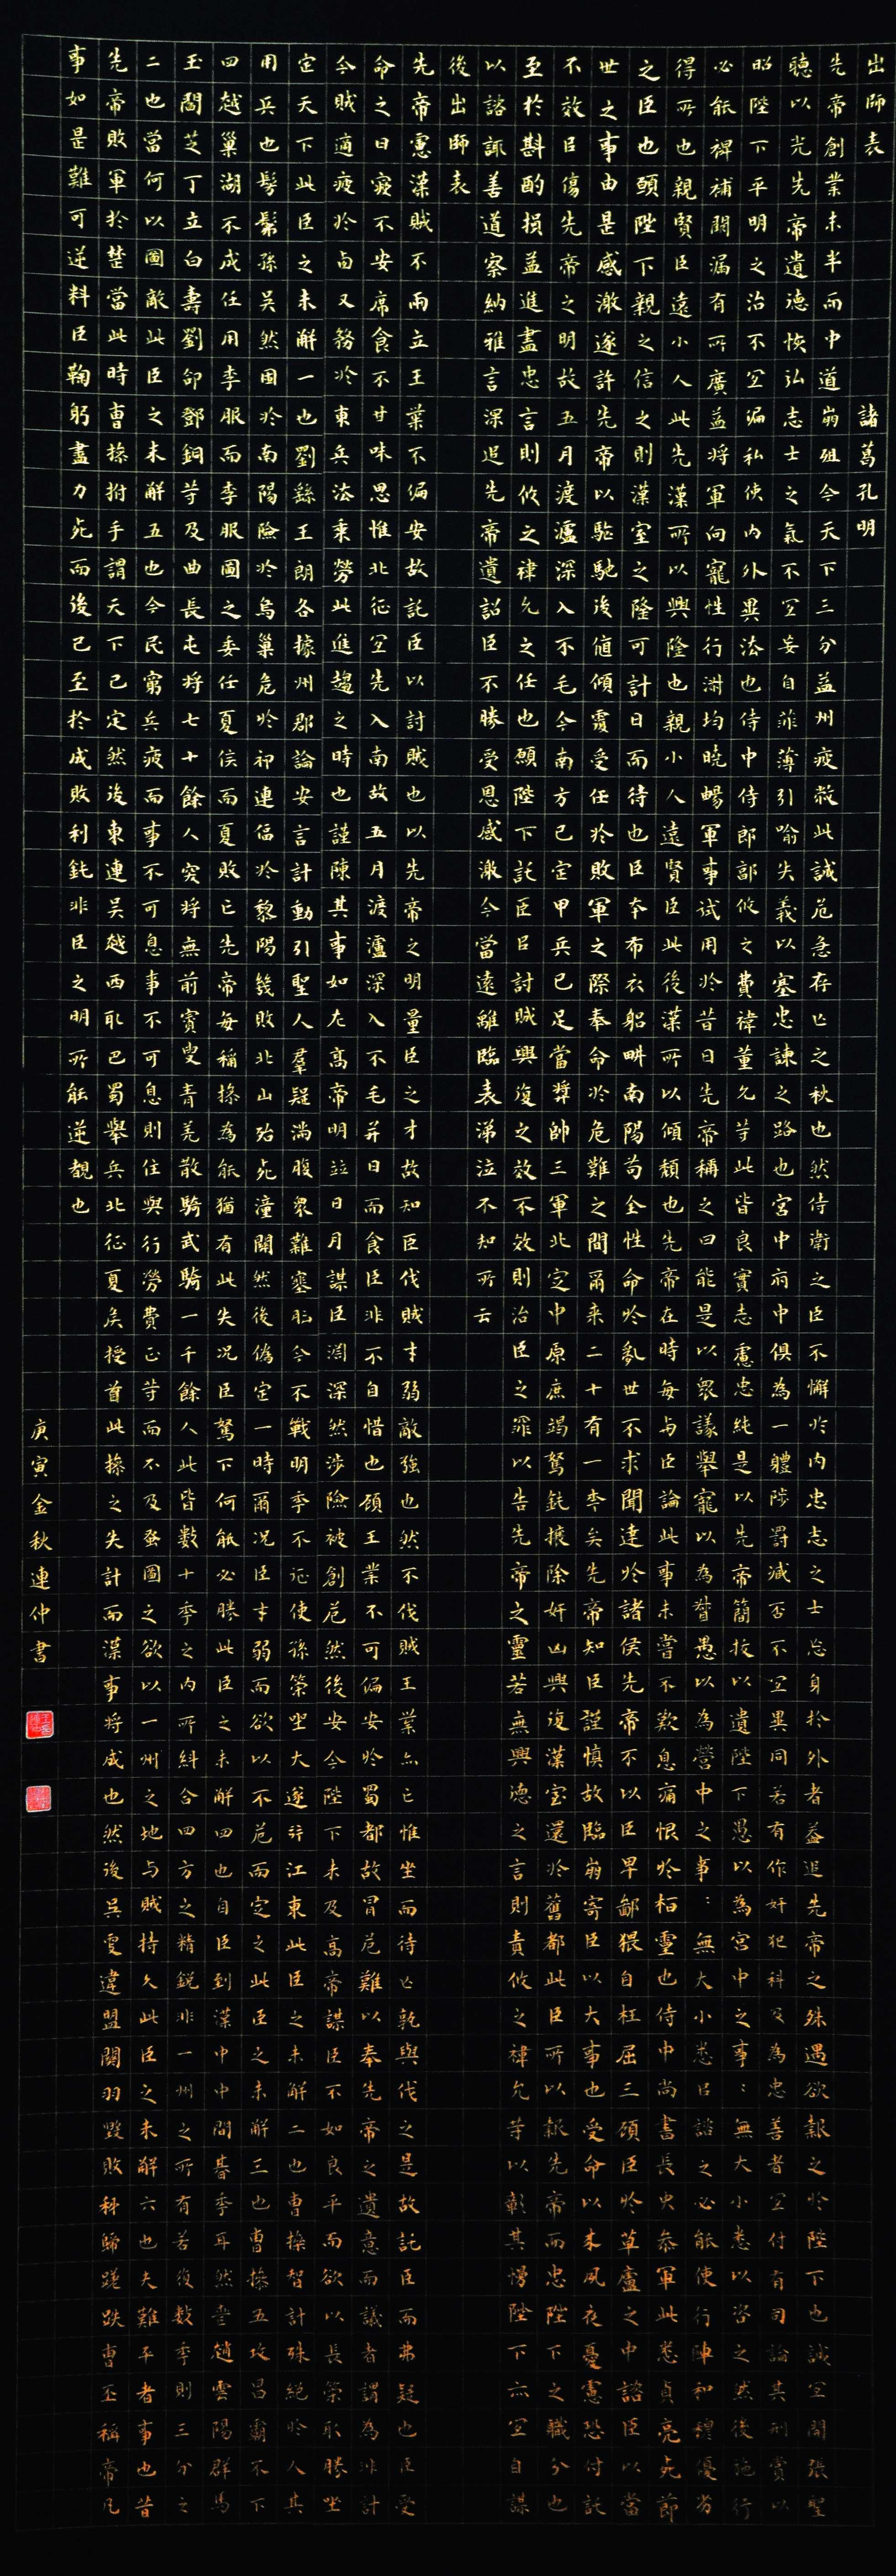 出師表 諸葛孔明
先帝創業未半而中道崩殂今天下三分益州疲敝此誠危急存亡之秋也然侍衛之臣不懈於內忠志之士忘身於外者益追先帝之殊遇欲報之於陛下也誠宜開張聖
聽以光先帝遺德恢弘志士之氣不宜妄自菲薄引喻失義以塞忠諫之路也宮中府中俱為一體陟罰臧否不宜異同若有作奸犯科及為忠善者宜付有司論其刑賞以
昭陛下平明之治不宜偏私使內外異法也侍中侍郎郭攸之費禕董允等此皆良實志慮忠純是以先帝簡拔以遺陛下愚以為宮中之事:無大小悉以咨之然後施行
必能裨補闕漏有所廣益將軍向寵性行淑均曉暢軍事試用於昔日先帝稱之曰能是以眾議舉寵以為督愚以為營中之事:無大小悉以諮之必能使行陣和穆優劣
得所也親賢臣遠小人此先漢所以興隆也親小人遠賢臣此後漢所以傾頹也先帝在時每与臣論此事未嘗不歎息痛恨於桓靈也侍中尚書長史參軍此悉貞亮死節
之臣也願陛下親之信之則漢室之隆可計日而待也臣本布衣躬畊南陽苟全性命於亂世不求聞達於諸侯先帝不以臣卑鄙猥自枉屈三顧臣於草廬之中諮臣以當
世之事由是感激遂許先帝以驅馳後值傾覆受任於敗軍之際奉命於危難之間爾来二十有一季矣先帝知臣謹慎故臨崩寄臣以大事也受命以来夙夜憂慮恐付託
不效臣傷先帝之明故五月渡瀘深入不毛今南方已定甲兵已足當獎帥三軍北定中原庶竭駑鈍攘除奸凶興復漢室還於舊都此臣所以報先帝而忠陛下之職分也
至於斟酌損益進盡忠言則攸之禕允之任也願陛下託臣以討賊興復之效不效則治臣之罪以告先帝之靈若無興德之言則責攸之禕允等以彰其慢陛下亦宜自謀
以諮諏善道察納雅言深追先帝遺詔臣不勝受恩感激今當遠離臨表涕泣不知所云
後出師表
先帝慮漢賊不兩立王業不偏安故託臣以討賊也以先帝之明量臣之才故知臣伐賊才弱敵強也然不伐賊王業亦亡惟坐而待亡孰與伐之是故託臣而弗疑也臣受
命之日寢不安席食不甘味思惟北征宜先入南故五月渡瀘深入不毛并日而食臣非不自惜也顧王業不可偏安於蜀都故冒危難以奉先帝之遺意而議者謂為非計
今賊適疲於西又務於東兵法乘勞此進趨之時也謹陳其事如左高帝明並日月謀臣淵深然涉險被創危然後安今陛下未及高帝謀臣不如良平而欲以長策取勝坐
定天下此臣之未解一也劉繇王朗各據州郡論安言計動引聖人羣疑滿腹眾難塞胸今不戰明季不征使孫策坐大遂并江東此臣之未解二也曹操智計殊絕於人其
用兵也髣髴孫吳然困於南陽險於烏巢危於祁連偪於黎陽幾敗北山殆死潼關然後偽定一時爾況臣才弱而欲以不危而定之此臣之未解三也曹操五攻昌霸不下
四越巢湖不成任用李服而李服圖之委任夏侯而夏敗亡先帝每稱操為能猶有此失況臣駑下何能必勝此臣之未解四也自臣到漢中中間朞季耳然喪趙雲陽群馬
玉閻芝丁立白壽劉郃鄧銅等及曲長屯將七十餘人突將無前賨叟青羌散騎武騎一千餘人此皆數十季之內所糾合四方之精銳非一州之所有若復數季則三分之
二也當何以圖敵此臣之未解五也今民窮兵疲而事不可息事不可息則住與行勞費正等而不及蚤圖之欲以一州之地与賊持久此臣之未解六也夫難平者事也昔
先帝敗軍於楚當此時曹操拊手謂天下已定然後東連吳越西取巴蜀舉兵北征夏侯授首此操之失計而漢事將成也然後吳更違盟關羽毀敗秭歸蹉跌曹丕稱帝凡
事如是難可逆料臣鞠躬盡力死而後已至於成敗利鈍非臣之明所能逆覩也
庚寅金秋連仲書